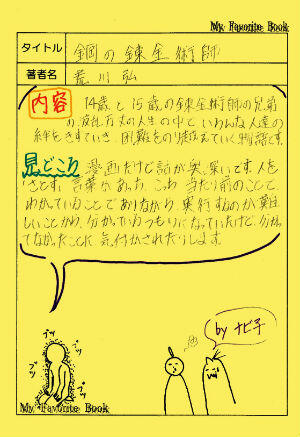 My Favorite Book
タイトル 鋼の錬金術師
著者名 荒川弘
内容 14歳と15歳の錬金術師の兄弟
の波乱万丈の人生の中で いろんな人達の
絆をきずいていき、困難をのり越えていく物語です。
見どころ 漫画だけど話が奥深いです。人を
いさとす 言葉があったり、当たり前のことで、
わかっていることでありながら、実行するのが難
しいことがあり、分かっているつもりになっていたけど、分かっ
てなかったことに気付かされたりします。
by ナビ子
ブツ
ブツ
ブツ
ブツ
My Favorite Book